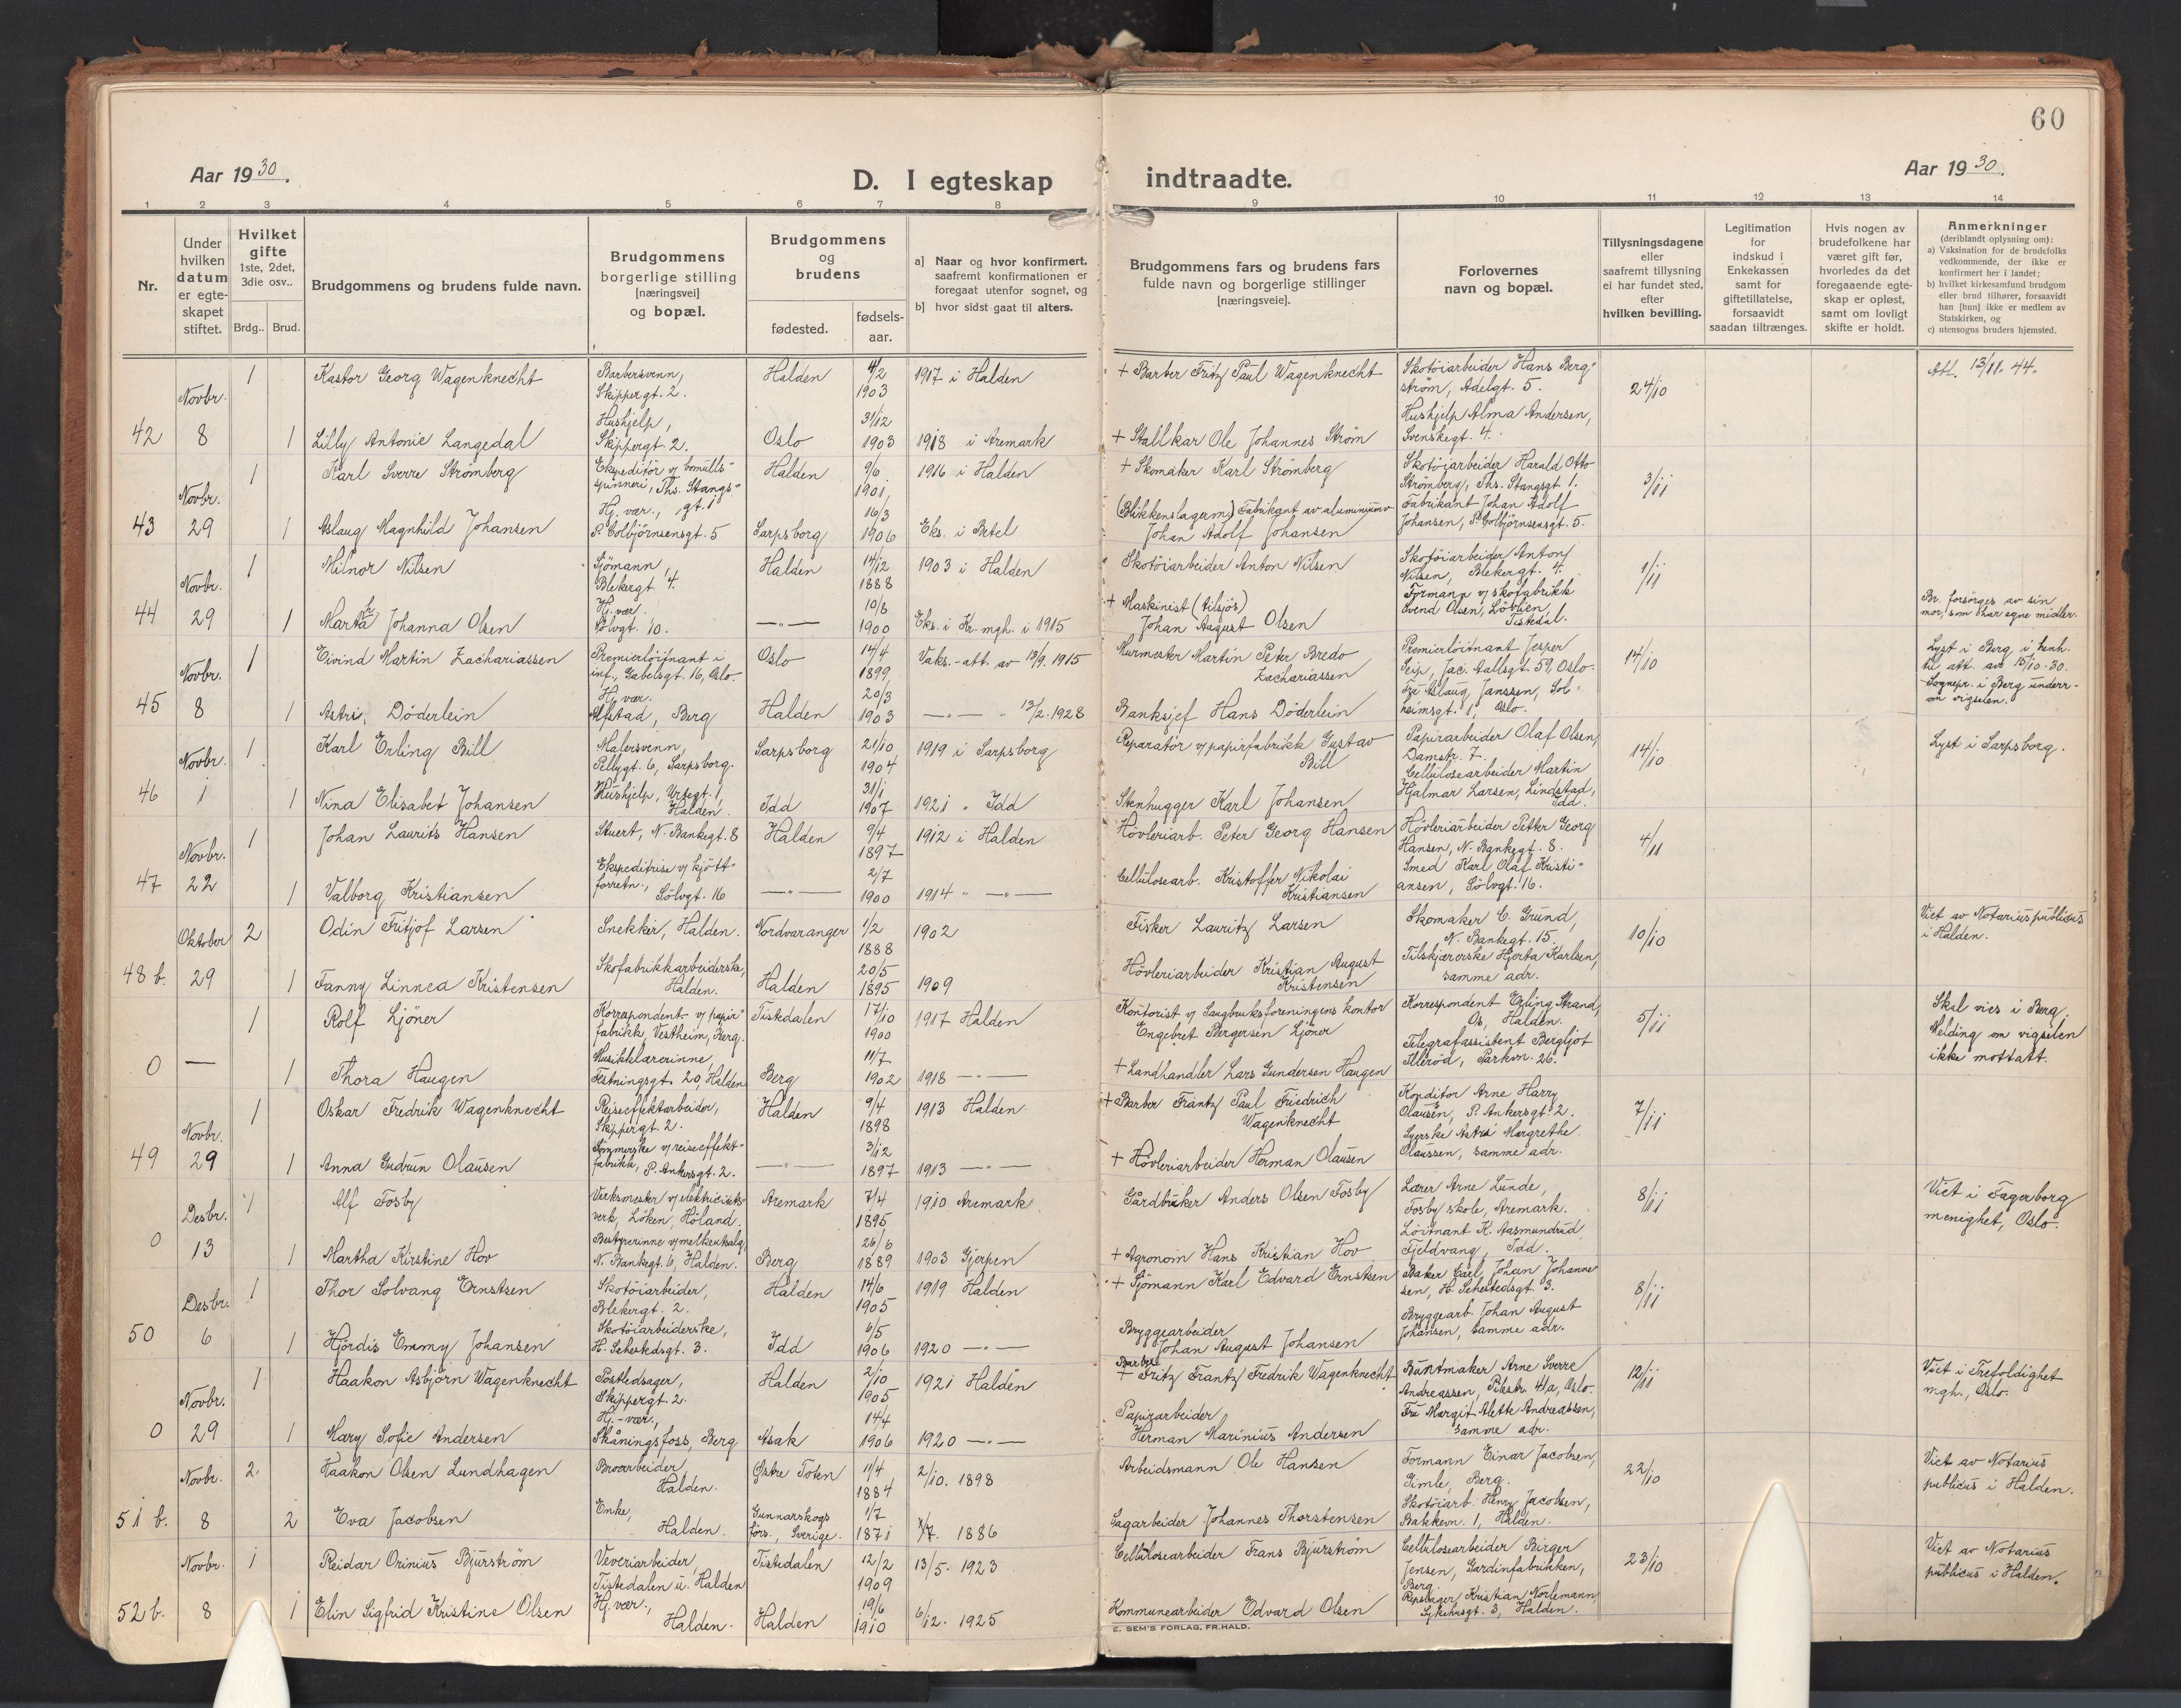 60
Aar 1930.
D. I egteskap indtraadte.
Aar 1930.
1 2 3 4 5 6 7 8 9 10 11 12 13 14
Nr.
Under hvilken datum er egteskapet stiftet.
Hvilket gifte 1ste, 2det, 3die osv..
Brdg.. Brud.
Brudgommens og brudens fulde navn.
Brudgommens borgerlige stilling [næringsvei] og bopæl.
Brudgommens og brudens
fødested.
fødsels-aar.
a] Naar og hvor konfirmert, saafremt konfirmationen er foregaat utenfor sognet, og
b] hvor sidst gaat til alters.
Brudgommens fars og brudens fars fulde navn og borgerlige stillinger [næringsveie].
Forlovernes navn og bopæl.
Tillysningsdagene eller saafremt tillysning ei har fundet sted, efter hvilken bevilling.
Legitimation for indskud i Enkekassen samt for giftetillatelse, forsaavidt saadan tiltrænges.
Hvis nogen av brudefolkene har været gift før, hvorledes da det foregaaende egteskap er opløst, samt om lovligt skifte er holdt.
Anmerkninger (deriblandt oplysning om):
a) Vaksination for de brudefolks vedkommende, der ikke er konfirmert her i landet;
b) hvilket kirkesamfund brudgom eller brud tilhører, forsaavidt han [hun] ikke er medlem av Statskirken, og
c) utensogns bruders hjemsted.
Novbr. 1 Kastor Georg Wagenknecht Barbersvenn, Skippergt. 2. Halden 4/2 1903 1917 i Halden + Barber Fritz Paul Wagenknecht Skotöiarbeider Hans Bergström, Adelgt. 5. 24/10 Att. 13/11. 44.
42 8 1 Lilly Antonie Langedal Hushjelp, Skippergt. 2. Oslo 31/12 1903 1918 i Aremark + Stallkar Ole Johannes Ström Hushjelp Alma Andersen, Svenskegt. 4.
Novbr. 1 Karl Sverre Strömberg Ekspeditör v/ bomullsspinneri, Ths. Stangsgt. 1 Halden 9/6 1901 1916 i Halden + Skomaker Karl Strömberg Skotöiarbeider Harald Otto Strömberg, Ths. Stangsgt 1. 3/11
43 29 1 Aslaug Magnhild Johansen Hj. vær., P. Colbjörnsensgt. 5 Sarpsborg 16/3 1906 Eks. i Betel (Blikkenslagerm.) Fabrikant av aluminiumv. Johan Adolf Johansen Fabrikant Johan Adolf Johansen, P. Colbjörnsensgt. 5.
Novbr. 1 Milnor Nilsen Sjömann, Blekergt. 4. Halden 14/12 1888 1903 i Halden Skotöiarbeider Anton Nilsen Skotöiarbeider Anton Nilsen, Blekergt. 4. 1/11
44 29 1 Martha Johanna Olsen Hj. vær. Sölvgt. 10. —"— 10/8 1900 Eks. i Kr. mgh. i 1915 + Maskinist (tilsjös) Johan August Olsen Formann v/ skofabrikk Svend Olsen, Lövlien, Tistedal. Br. forsörges av sin mor, som har egne midler.
Novbr. 1 Eivind Martin Zachariassen Premierlöitnant i inf., Gabelsgt. 16, Oslo. Oslo 14/4 1899 Vaks.-att. av 13/9. 1915 Murmester Martin Peter Bredo Zachariassen Premierlöitnant Jesper Seip, Jac. Aallsgt. 59, Oslo. 14/10 Lyst i Berg i henh. til att. av 15/10. 30. Sognepr. i Berg underr. om vigselen.
45 8 1 Astri Döderlein Hj. vær. Alfstad, Berg Halden 20/3 1903 —"— " 13/2. 1928 Banksjef Hans Döderlein Frú Aslaug Janssen, Solheimsgt. 1, Oslo.
Novbr. 1 Karl Erling Bill Malersvenn, Pellygt. 6, Sarpsborg. Sarpsborg 21/10 1904 1919 i Sarpsborg Reparatör v/ papirfabrikk Gustav Bill Papirarbeider Olaf Olsen, Damstr. 7. 14/10 Lyst i Sarpsborg.
46 1 1 Nina Elisabet Johansen Hushjelp, Ursegt. 1, Halden. Idd 31/1 1907 1921 " Idd Stenhugger Karl Johansen Cellulosearbeider Martin Hjalmar Larsen, Lindstad, Idd.
Novbr. 1 Johan Laurits Hansen Stuert, N. Bankegt. 8 Halden 9/4 1897 1912 i Halden Hövleriarb. Peter Georg Hansen Hövleriarbeider Petter Georg Hansen, N. Bankegt. 8. 4/11
47 22 1 Valborg Kristiansen Ekspeditrise v/ kjöttforretn., Sölvgt. 16 —"— 2/7 1900 1914 " —"— Cellulosearb. Kristoffer Nikolai Kristiansen Smed Karl Olaf Kristiansen, Sölvgt. 16.
Oktober 2 Odin Fritjof Larsen Snekker, Halden. Nordvaranger 1/2 1888 1902 Fisker Lauritz Larsen Skomaker C. Grund, N. Bankegt. 15. 10/10 Viet av Notarius publicus i Halden.
48 b. 29 1 Fanny Linnea Kristensen Skofabrikkarbeiderske, Halden. Halden 20/5 1895 1909 Hövleriarbeider Kristian August Kristensen Tilskjærerske Hjerta Karlsen, samme adr.
1 Rolf Ljöner Korrespondent v/ papirfabrikk, Vestheim, Berg. Tistedalen 17/10 1900 1917 Halden Kontorist v/ Saugbruksforeningens kontor Engebret Bergersen Ljöner Korrespondent Erling Strand, Os, Halden. 5/11 Skal vies i Berg. Melding om vigselen ikke mottatt.
0 — 1 Thora Haugen Musikklærerinne, Festningsgt. 20, Halden Berg 11/7 1902 1918 —"— + Landhandler Lars Gundersen Haugen Telegrafassistent Bergljot Ileröd, Parkvn. 26.
Novbr. 1 Oskar Fredrik Wagenknecht Reiseeffektarbeider, Skippergt. 2. Halden 9/4 1898 1913 Halden + Barber Frantz Paul Friedrich Wagenknecht Konditor Arne Harry Olausen, P. Ankersgt. 2. 7/11
49 29 1 Anna Gudrun Olausen Sömmerske v/ reiseeffektfabrikk, P. Ankersgt. 2. —"— 3/12 1897 1913 —"— + Hövleriarbeider Herman Olausen Syerske Astri Margrethe Olaussen, samme adr.
Desbr. 1 Alf Fosby Verksmester v/ elektricitetsverk, Löken, Höland. Aremark 7/4 1895 1910 Aremark Gårdbruker Anders Olsen Fosby Lærer Arne Lunde, Fosby skole, Aremark. 8/11 Viet i Fagerborg menighet, Oslo.
0 13 1 Martha Kirstine Hov Bestyrerinne v/ melkeutsalg, N. Bankegt. 6, Halden. Berg 26/6 1889 1903 Gjerpen + Agronom Hans Kristian Hov Löitnant K. Aasmundrud, Fjeldvang, Idd.
Desbr. 1 Thor Solvang Ernstsen Skotöiarbeider, Blekergt. 2. Halden 14/6 1905 1919 Halden + Sjömann Karl Edvard Ernstsen Baker Carl Johan Johannesen, H. Sehestedsgt. 3. 8/11
50 6 1 Hjördis Emmy Johansen Skotöiarbeiderske, H. Sehestedsgt. 3. Idd 6/5 1906 1920 —"— Bryggearbeider Johan August Johansen Bryggearb. Johan August Johansen, samme adr.
Novbr. 1 Haakon Asbjörn Wagenknecht Postledsager, Skippergt. 2. Halden 2/10 1905 1921 Halden Barber + Fritz Frantz Fredrik Wagenknecht Buntmaker Arne Sverre Andreassen, Pilestr. 41a, Oslo. 12/11 Viet i Trefoldighet mgh., Oslo.
0 29 1 Mary Sofie Andersen Hj.-vær., Skåningsfoss, Berg Asak 14/4 1906 1920 —"— Papirarbeider Herman Marinius Andersen Frú Margit Alette Andreassen, samme adr.
Novbr. 2. Haakon Olsen Lundhagen Broarbeider, Halden. Østre Toten 11/4 1884 2/10. 1898 Arbeidsmann Ole Hansen Formann Einar Jacobsen, Gimle, Berg. 22/10 Viet av Notarius publicus i Halden.
51 b. 8 2 Eva Jacobsen Enke, Halden. Gunnarskogs förs., Sverige. 1/7 1871 /7. 1886 Sagarbeider Johannes Thorstensen Skotöiarb. Henry Jacobsen, Bakkevn. 1, Halden.
Novbr. 1 Reidar Orinius Bjurström Veveriarbeider, Tistedalen u. Halden Tistedalen 12/2 1909 13/5. 1923 Cellulosearbeider Frans Bjurström Cellulosearbeider Birger Jensen, Gardinfabrikken, Berg. 23/10 Viet av Notarius publicus i Halden.
52 b. 8 1 Elin Sigfrid Kristine Olsen Hj. vær., Halden. Halden 19/6 1910 6/12. 1925 Kommunearbeider Edvard Olsen Repslager Kristian Norlemann, Sykehusgt. 3, Halden.
E. SEM'S FORLAG, FR.HALD.